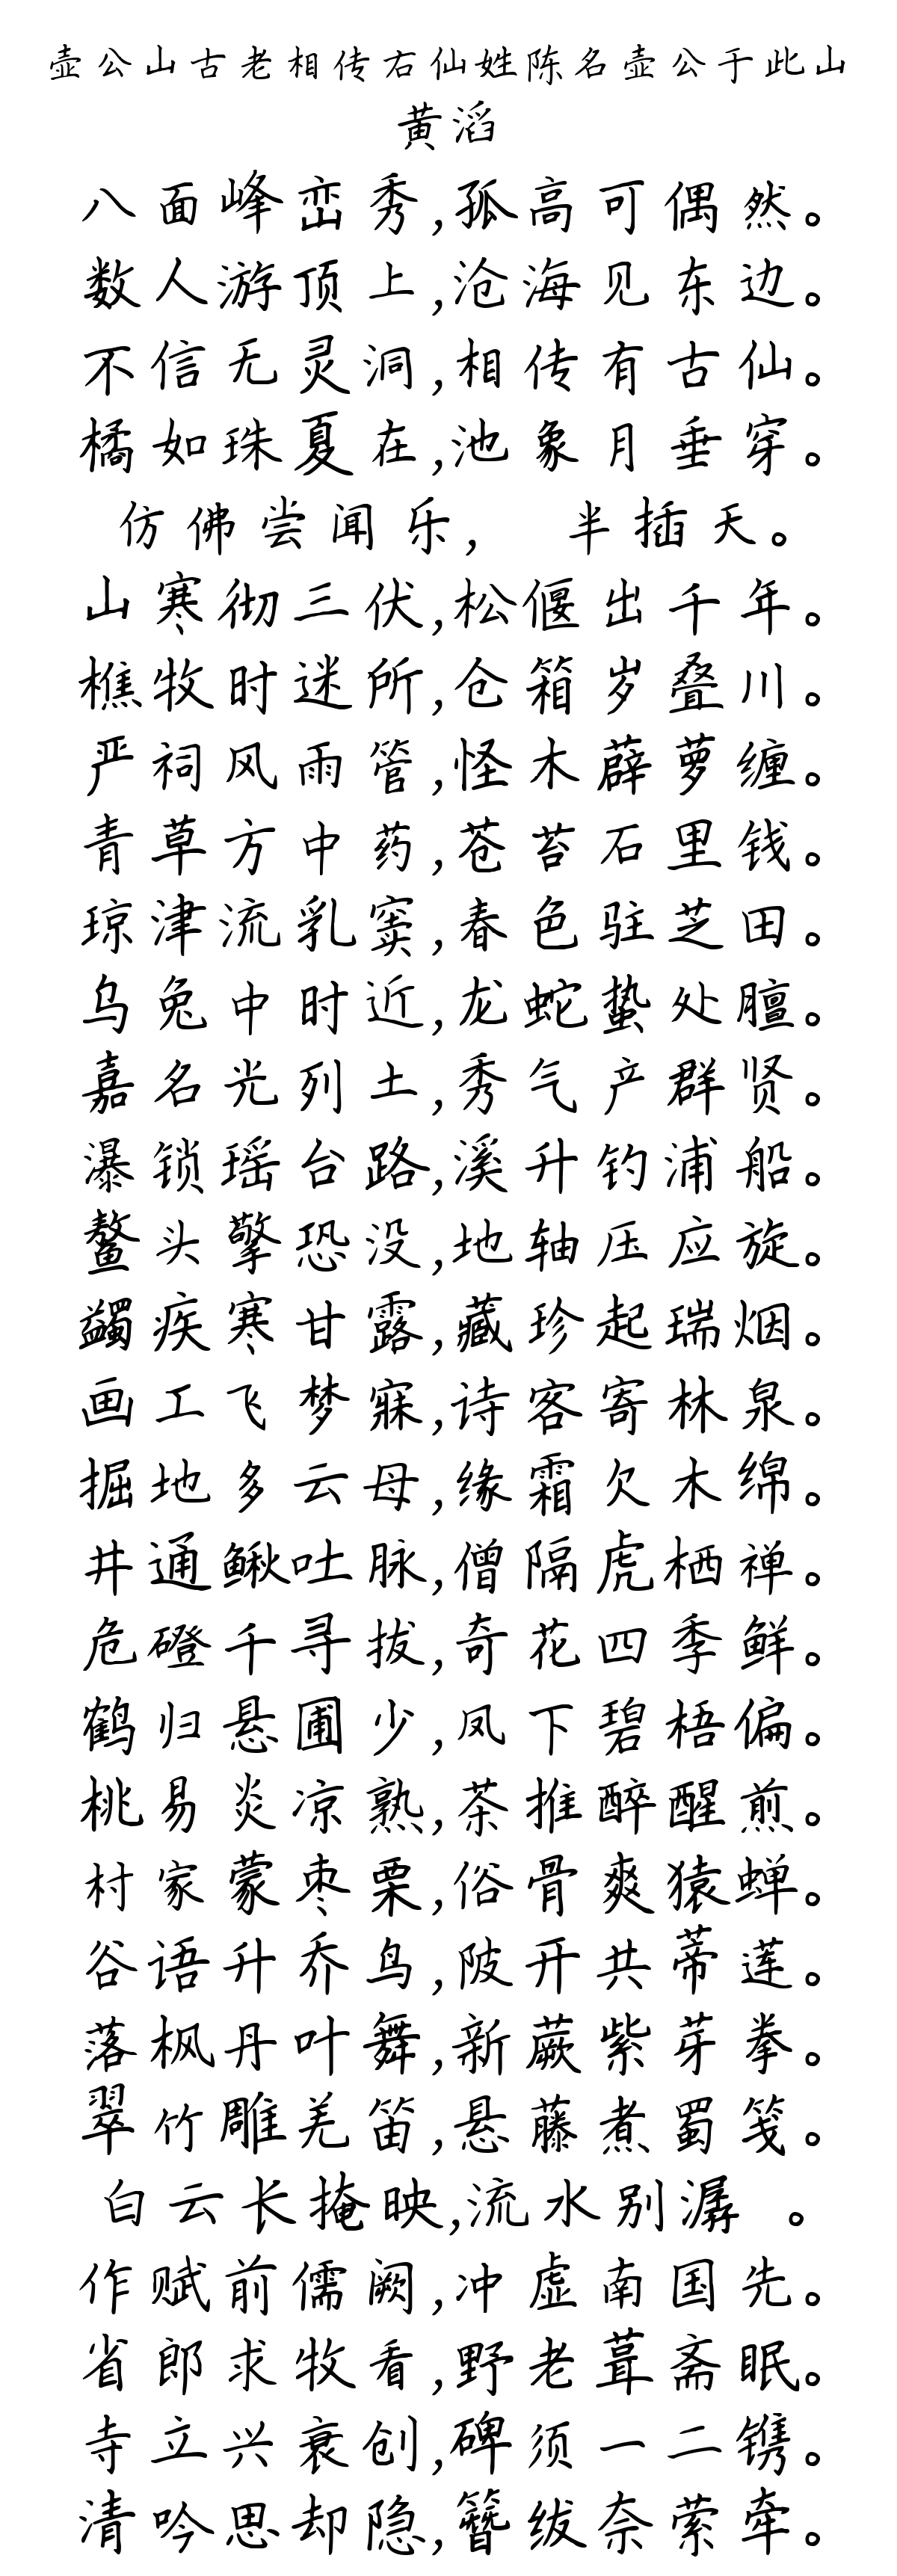 壶公山古老相传右仙姓陈名壶公于此山
黄滔
八面峰峦秀,孤高可偶然。
数人游顶上,沧海见东边。
不信无灵洞,相传有古仙。
橘如珠夏在,池象月垂穿。
仿佛尝闻乐, 半插天。
山寒彻三伏,松偃出千年。
樵牧时迷所,仓箱岁叠川。
严祠风雨管,怪木薜萝缠。
青草方中药,苍苔石里钱。
琼津流乳窦,春色驻芝田。
乌兔中时近,龙蛇蛰处膻。
嘉名光列土,秀气产群贤。
瀑锁瑶台路,溪升钓浦船。
鳌头擎恐没,地轴压应旋。
蠲疾寒甘露,藏珍起瑞烟。
画工飞梦寐,诗客寄林泉。
掘地多云母,缘霜欠木绵。
井通鳅吐脉,僧隔虎栖禅。
危磴千寻拔,奇花四季鲜。
鹤归悬圃少,凤下碧梧偏。
桃易炎凉熟,茶推醉醒煎。
村家蒙枣栗,俗骨爽猿蝉。
谷语升乔鸟,陂开共蒂莲。
落枫丹叶舞,新蕨紫芽拳。
翠竹雕羌笛,悬藤煮蜀笺。
白云长掩映,流水别潺 。
作赋前儒阙,冲虚南国先。
省郎求牧看,野老葺斋眠。
寺立兴衰创,碑须一二镌。
清吟思却隐,簪绂奈萦牵。